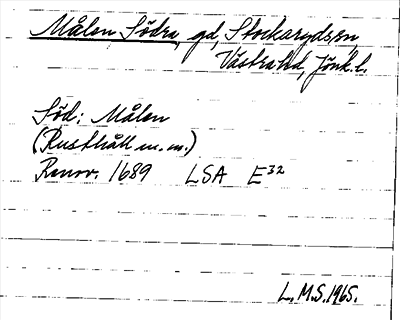 Målen Södra, gd, Stockarydssn,
Västra hd, Jönk.l.
Söd: Målen
(Rusthåll m.m.)
Renov. 1689 LSA E32
L.M.S.1965.